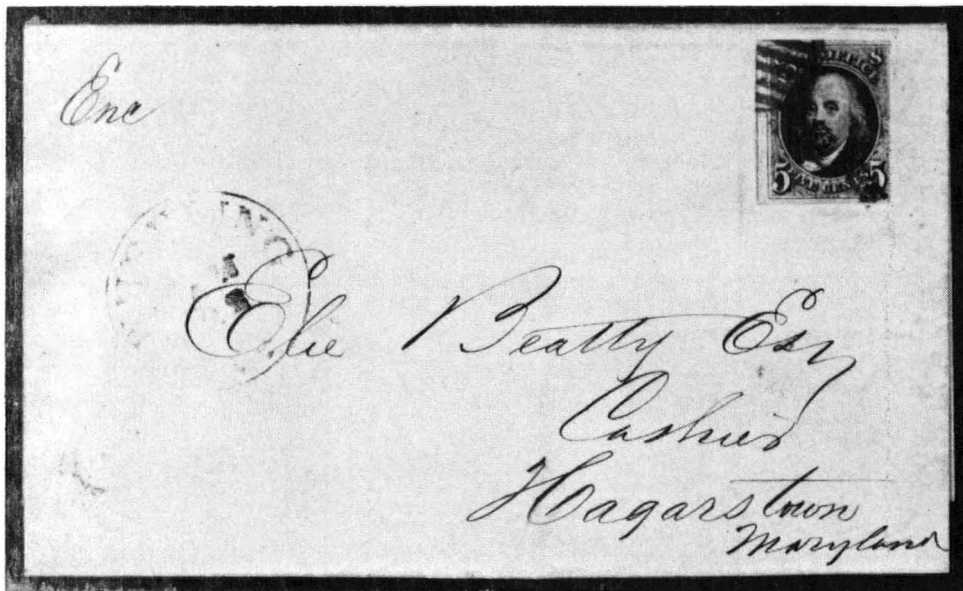 Enc
OFFICE
5 FIVE CENTS 5
Elie Beatty Esq
Cashier
Hagarstown
Maryland